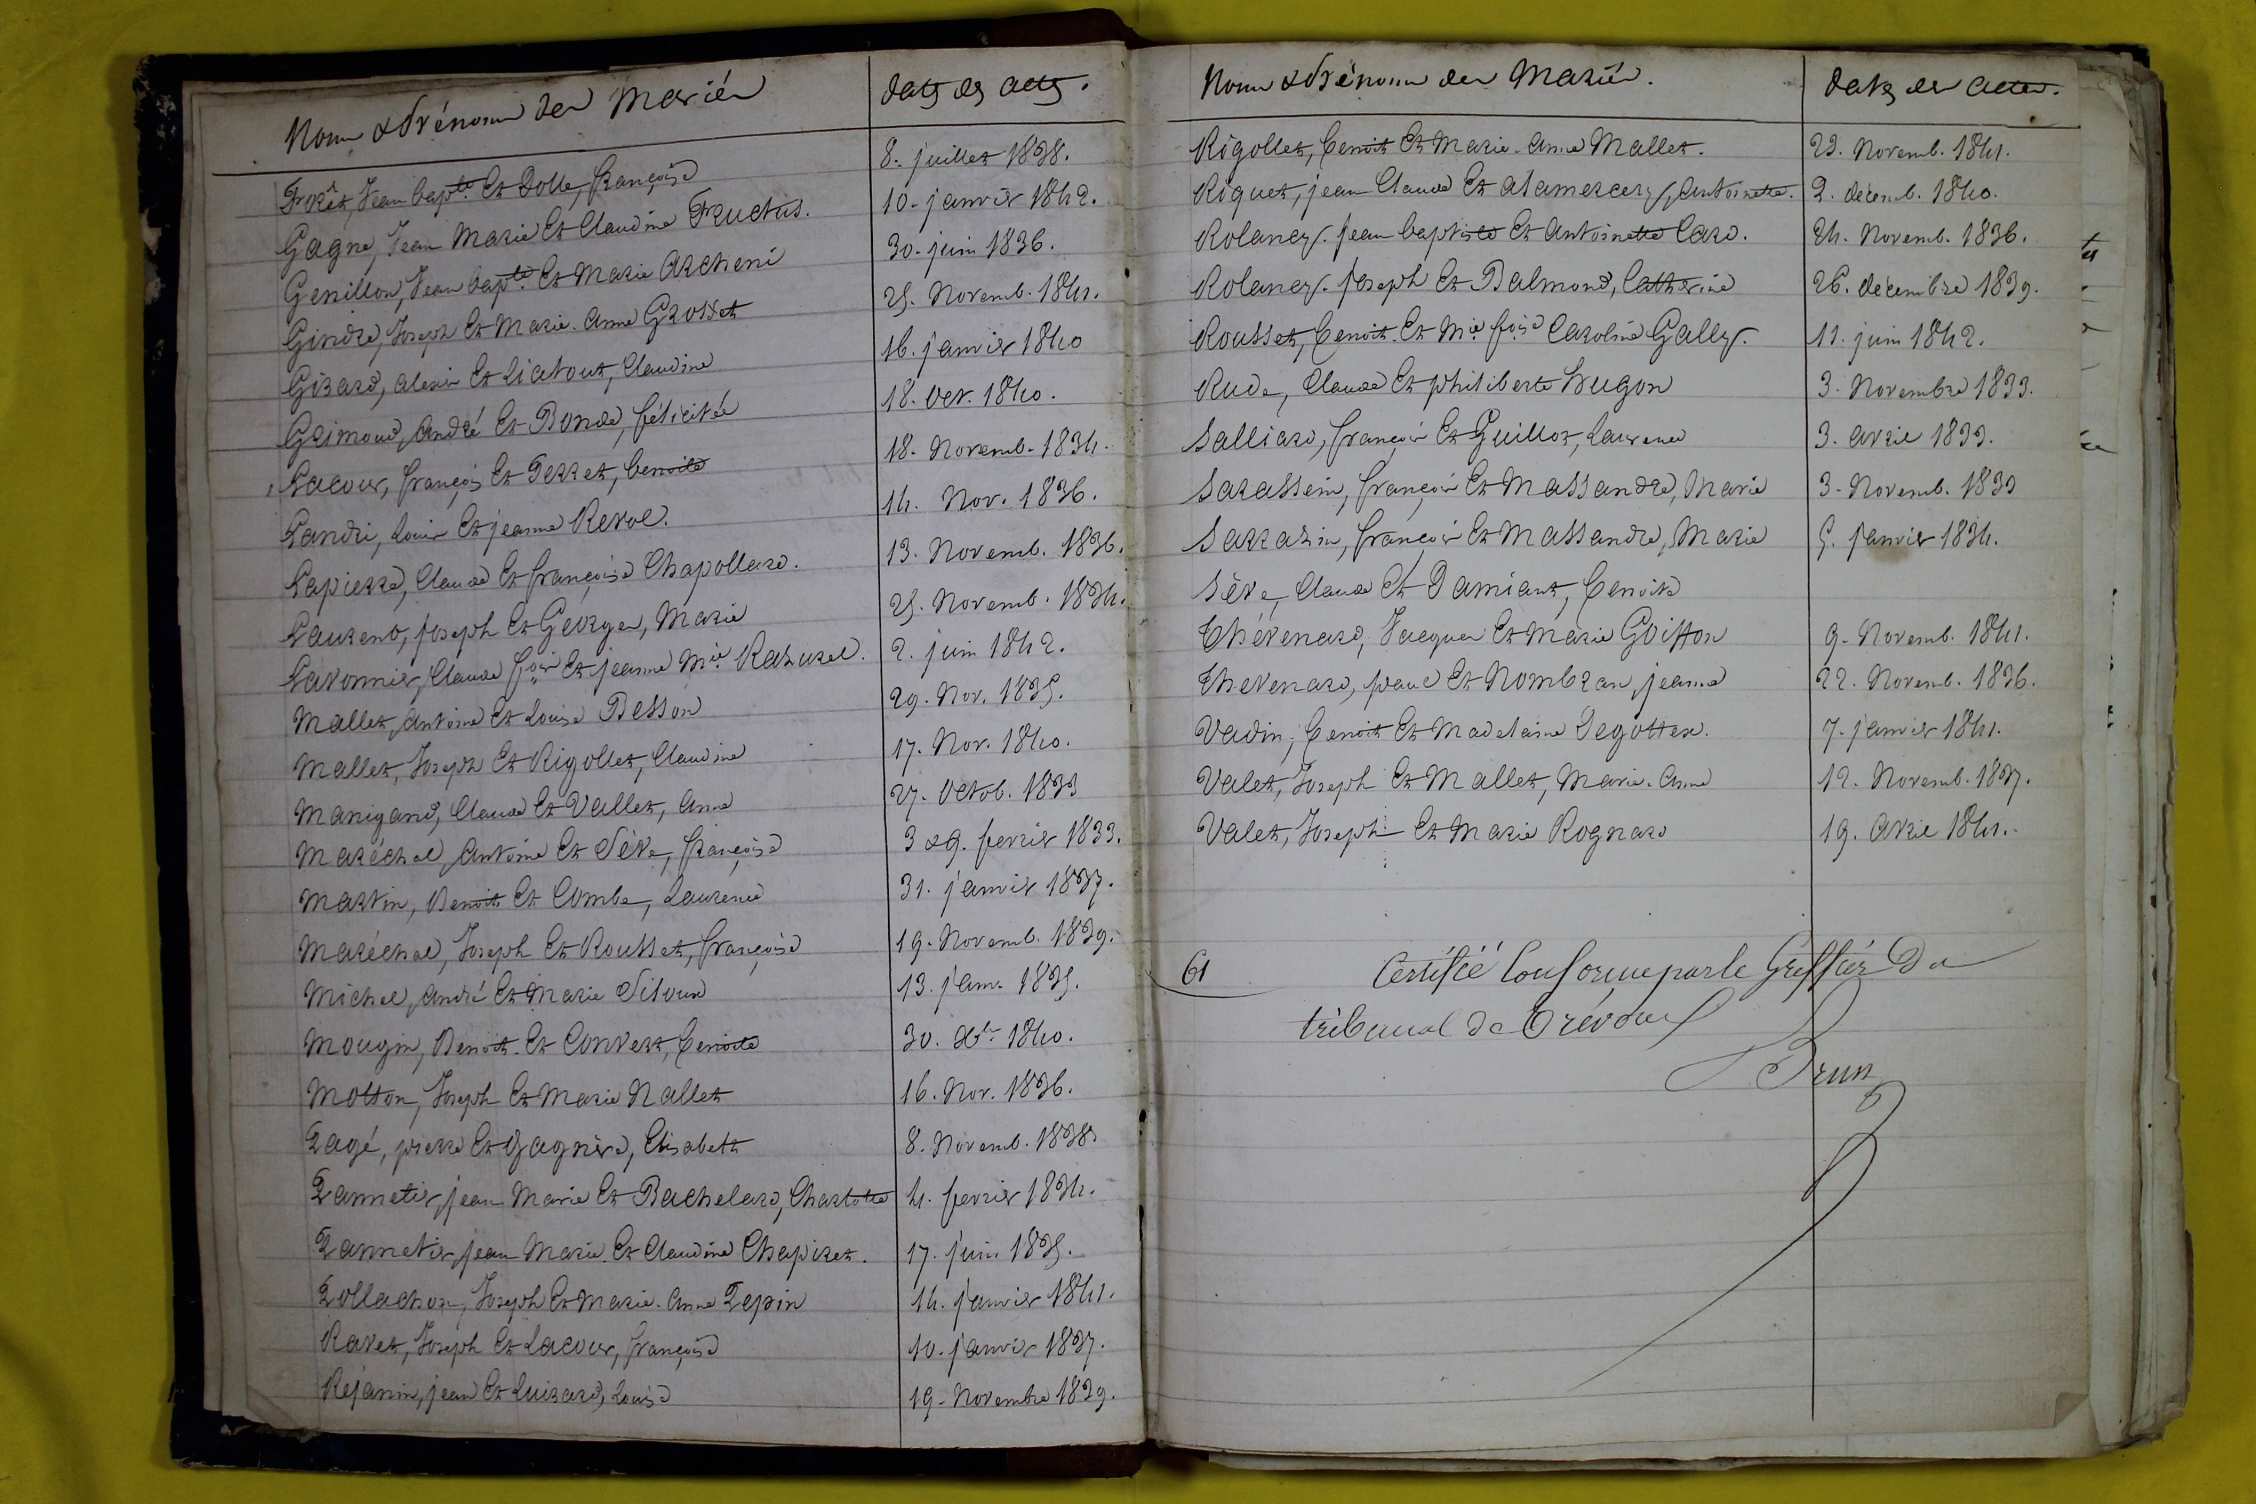 Noms & Prénoms des Mariés dates des actes.
Forêt, Jean bapte. Et Dolle, françoise 8. juillet 1838.
Gagne, Jean Marie Et Claudine Fructus. 10. janvier 1842.
Genillon, Jean bapte. Et Marie Archeni 30. juin 1836.
Gindre, Joseph Et Marie-Anne Grosset 25. Novemb. 1841.
Girard, Alexis Et Liatout, Claudine 16. janvier 1840
Grimoud, André Et Bonde, félicitée 18. Oct. 1840.
Lacour, françois Et Perret, benoite 18. Novemb. 1834.
Landri, Louis Et jeanne Revol. 14. Nov. 1836.
Lapierre, Claude Et françoise Chapollard. 13. Novemb. 1836.
Laurent, joseph Et Georges, Marie 25. Novemb. 1834.
Lavonnier, Claude fois Et jeanne Mie Razurel. 2. juin 1842.
Mallet, Antoine Et Louise Besson 29. Nov. 1835.
Mallet, Joseph Et Rigollet, Claudine 17. Nov. 1840.
Manigand, Claude Et Vallet, Anne 27. Octob. 1833
Maréchal, Antoine Et Sève, françoise 3 & 9. fevrier 1833.
Martin, Benoit Et Combe, Laurence 31. janvier 1837.
Maréchal, Joseph Et Rousset, françoise 19. Novemb. 1839.
Michel, André Et Marie Siloux 13. janv. 1835.
Mougin, Benoit Et Convert, benoite 30. Xbr. 1840.
Motton, Joseph Et Marie Nallet 16. Nov. 1836.
Pagé, pierre Et Gagnère, Elisabeth 8. Novemb. 1838
Pannetier, jean Marie Et Bachelard, Charlotte 4. fevrier 1834.
Pannetier, jean Marie Et Claudine Chapiret. 17. juin 1835.
Pollachon, Joseph Et Marie-Anne Pepin 14. janvier 1841.
Ravet, Joseph Et Lacour, françoise 10. janvier 1837.
Réjanin, jean Et Luizard, Louise 19. Novembre 1839.
Noms & Prénoms des Mariés. dates des actes.
Rigollet, benoit Et Marie-Anne Mallet. 23. Novemb. 1841.
Riquet, jean Claude Et Alamercery, Antoinette. 2. décemb. 1840.
Rolancy. jean baptiste Et Antoinette Card. 24. Novemb. 1836.
Rolancy. joseph Et Dalmond, Catherine 26. décembre 1839.
Rousset, benoit. Et Mie foise Caroline Gally. 11. juin 1842.
Rude, Claude Et philiberte Hugon 3. Novembre 1833.
Salliard, françois Et Guillot, Laurence 3. avril 1833.
Sarassein, françois Et Massandre, Marie 3. Novemb. 1833
Sarrazin, françois Et Massandre, Marie 5. janvier 1834.
Sève, Claude Et Damiant, benoite
Thévenard, Jacques Et Marie Goiffon 9. Novemb. 1841.
Thevenard, paul Et Nombran, jeanne 22. Novemb. 1836.
Vadin, benoit Et Madelaine Segottex. 7. janvier 1841.
Valet, Joseph Et Mallet, Marie-Anne 12. Novemb. 1837.
Valet, Joseph Et Marie Rognard 19. Avril 1841.
61 Certifié Conforme par le Greffier Du
tribunal de Trévoux
Brun